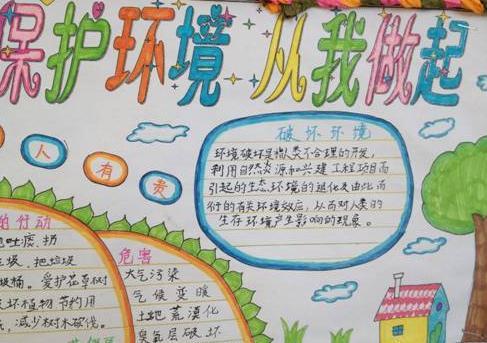 保护环境 从我做起
人有责
破坏环境
环境破坏是指人类不合理的开发，
利用自然资源和兴建工程项目而
引起的生态环境的退化及由此而
衍的有关环境效应，从而对人类的
生存环境产生影响的现象。
的行动
吐痰，扔
圾、把垃圾
圾桶。爱护花草树
坏植物 节约用
，减少树木砍伐。
危害
大气污染
气候变暖
土地荒漠化
臭氧层破坏